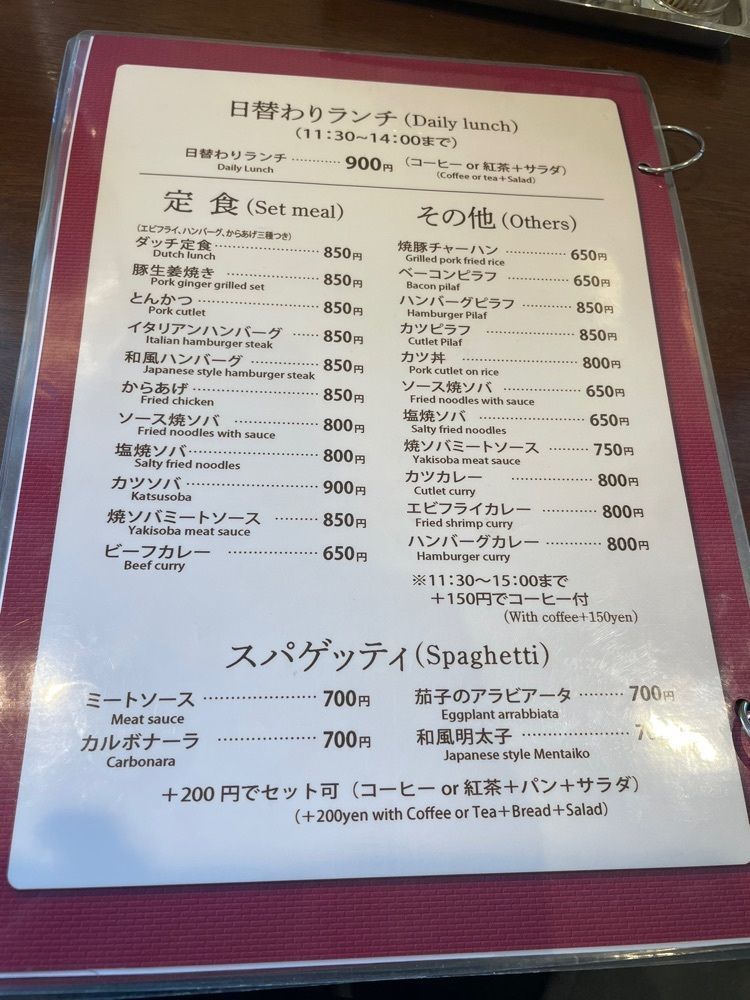 日替わりランチ (Daily lunch)
(11:30~14:00まで)
日替わりランチ ………… 900円 (コーヒー or 紅茶+サラダ)
Daily Lunch (Coffee or tea+Salad)
定 食 (Set meal)
(エビフライ、ハンバーグ、からあげ三種つき)
ダッチ定食 ………… 850円
Dutch lunch
豚生姜焼き ………… 850円
Pork ginger grilled set
とんかつ ………… 850円
Pork cutlet
イタリアンハンバーグ ………… 850円
Italian hamburger steak
和風ハンバーグ ………… 850円
Japanese style hamburger steak
からあげ ………… 850円
Fried chicken
ソース焼ソバ ………… 800円
Fried noodles with sauce
塩焼ソバ ………… 800円
Salty fried noodles
カツソバ ………… 900円
Katsusoba
焼ソバミートソース ……… 850円
Yakisoba meat sauce
ビーフカレー ………… 650円
Beef curry
その他 (Others)
焼豚チャーハン ………… 650円
Grilled pork fried rice
ベーコンピラフ ………… 650円
Bacon pilaf
ハンバーグピラフ ……… 850円
Hamburger Pilaf
カツピラフ ………… 850円
Cutlet Pilaf
カツ丼 ………… 800円
Pork cutlet on rice
ソース焼ソバ ………… 650円
Fried noodles with sauce
塩焼ソバ ………… 650円
Salty fried noodles
焼ソバミートソース ……… 750円
Yakisoba meat sauce
カツカレー ………… 800円
Cutlet curry
エビフライカレー ……… 800円
Fried shrimp curry
ハンバーグカレー ……… 800円
Hamburger curry
※11:30~15:00まで
+150円でコーヒー付
(With coffee+150yen)
スパゲッティ (Spaghetti)
ミートソース ………… 700円
Meat sauce
カルボナーラ ………… 700円
Carbonara
茄子のアラビアータ ……… 700円
Eggplant arrabbiata
和風明太子 …………
Japanese style Mentaiko
+200 円でセット可 (コーヒー or 紅茶+パン+サラダ)
(+200yen with Coffee or Tea+Bread+Salad)